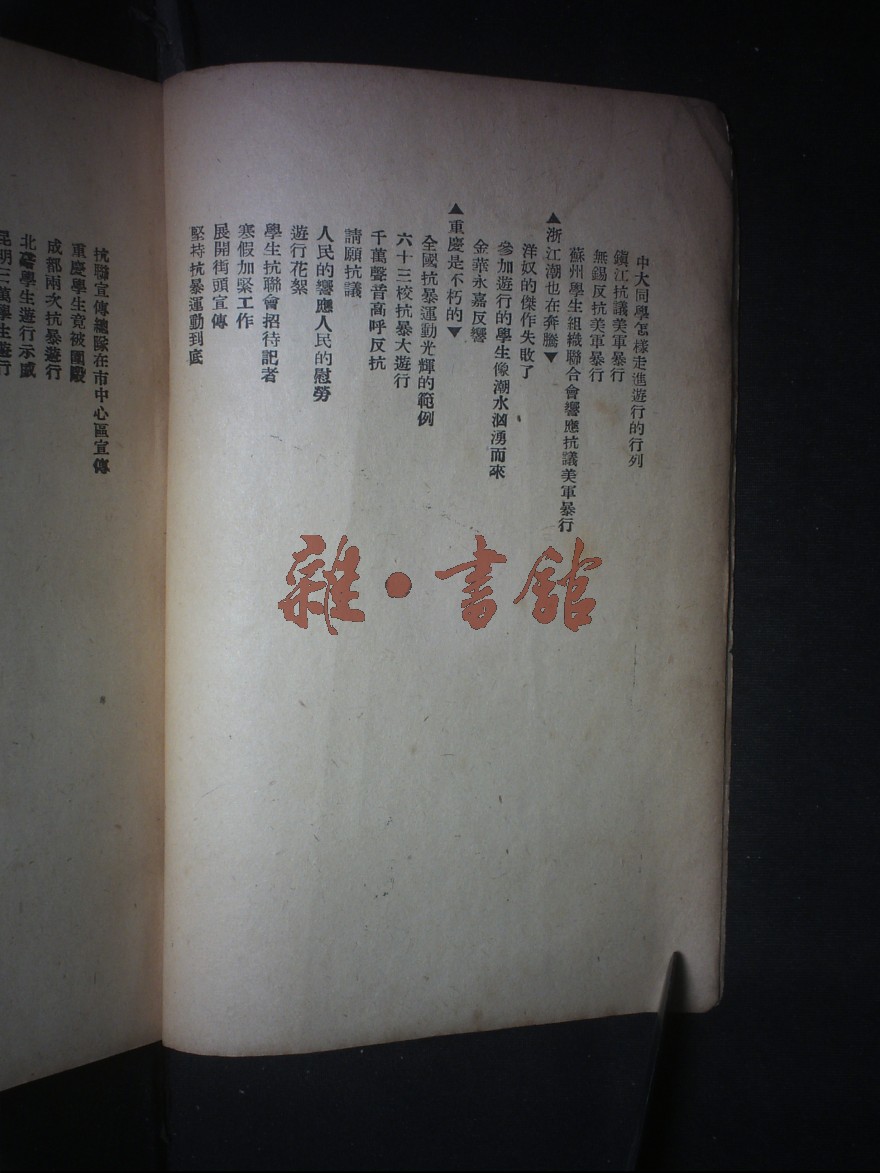 中大同學怎樣走進遊行的行列
鎮江抗議美軍暴行
無錫反抗美軍暴行
蘇州學生組織聯合會響應抗議美軍暴行
▲浙江潮也在奔騰▼
洋奴的傑作失敗了
參加遊行的學生像潮水汹湧而來
金華永嘉反響
▲重慶是不朽的▼
全國抗暴運動光輝的範例
六十三校抗暴大遊行
千萬聲音高呼反抗
請願抗議
人民的響應人民的慰勞
遊行花絮
學生抗聯會招待記者
寒假加緊工作
展開街頭宣傳
堅持抗暴運動到底
抗聯宣傳總隊在市中心區宣傳
重慶學生竟被圍毆
成都兩次抗暴遊行
北碚學生遊行示威
昆明三萬學生遊行
雜·書館